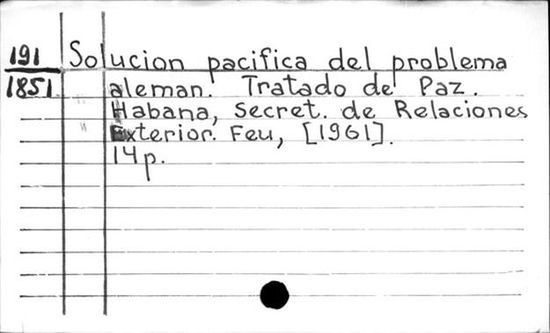 191 Solucion pacifica del problema
1851 aleman. Tratado de Paz.
Habana, Secret. de Relaciones
Exterior. Feu, [1961].
14p.